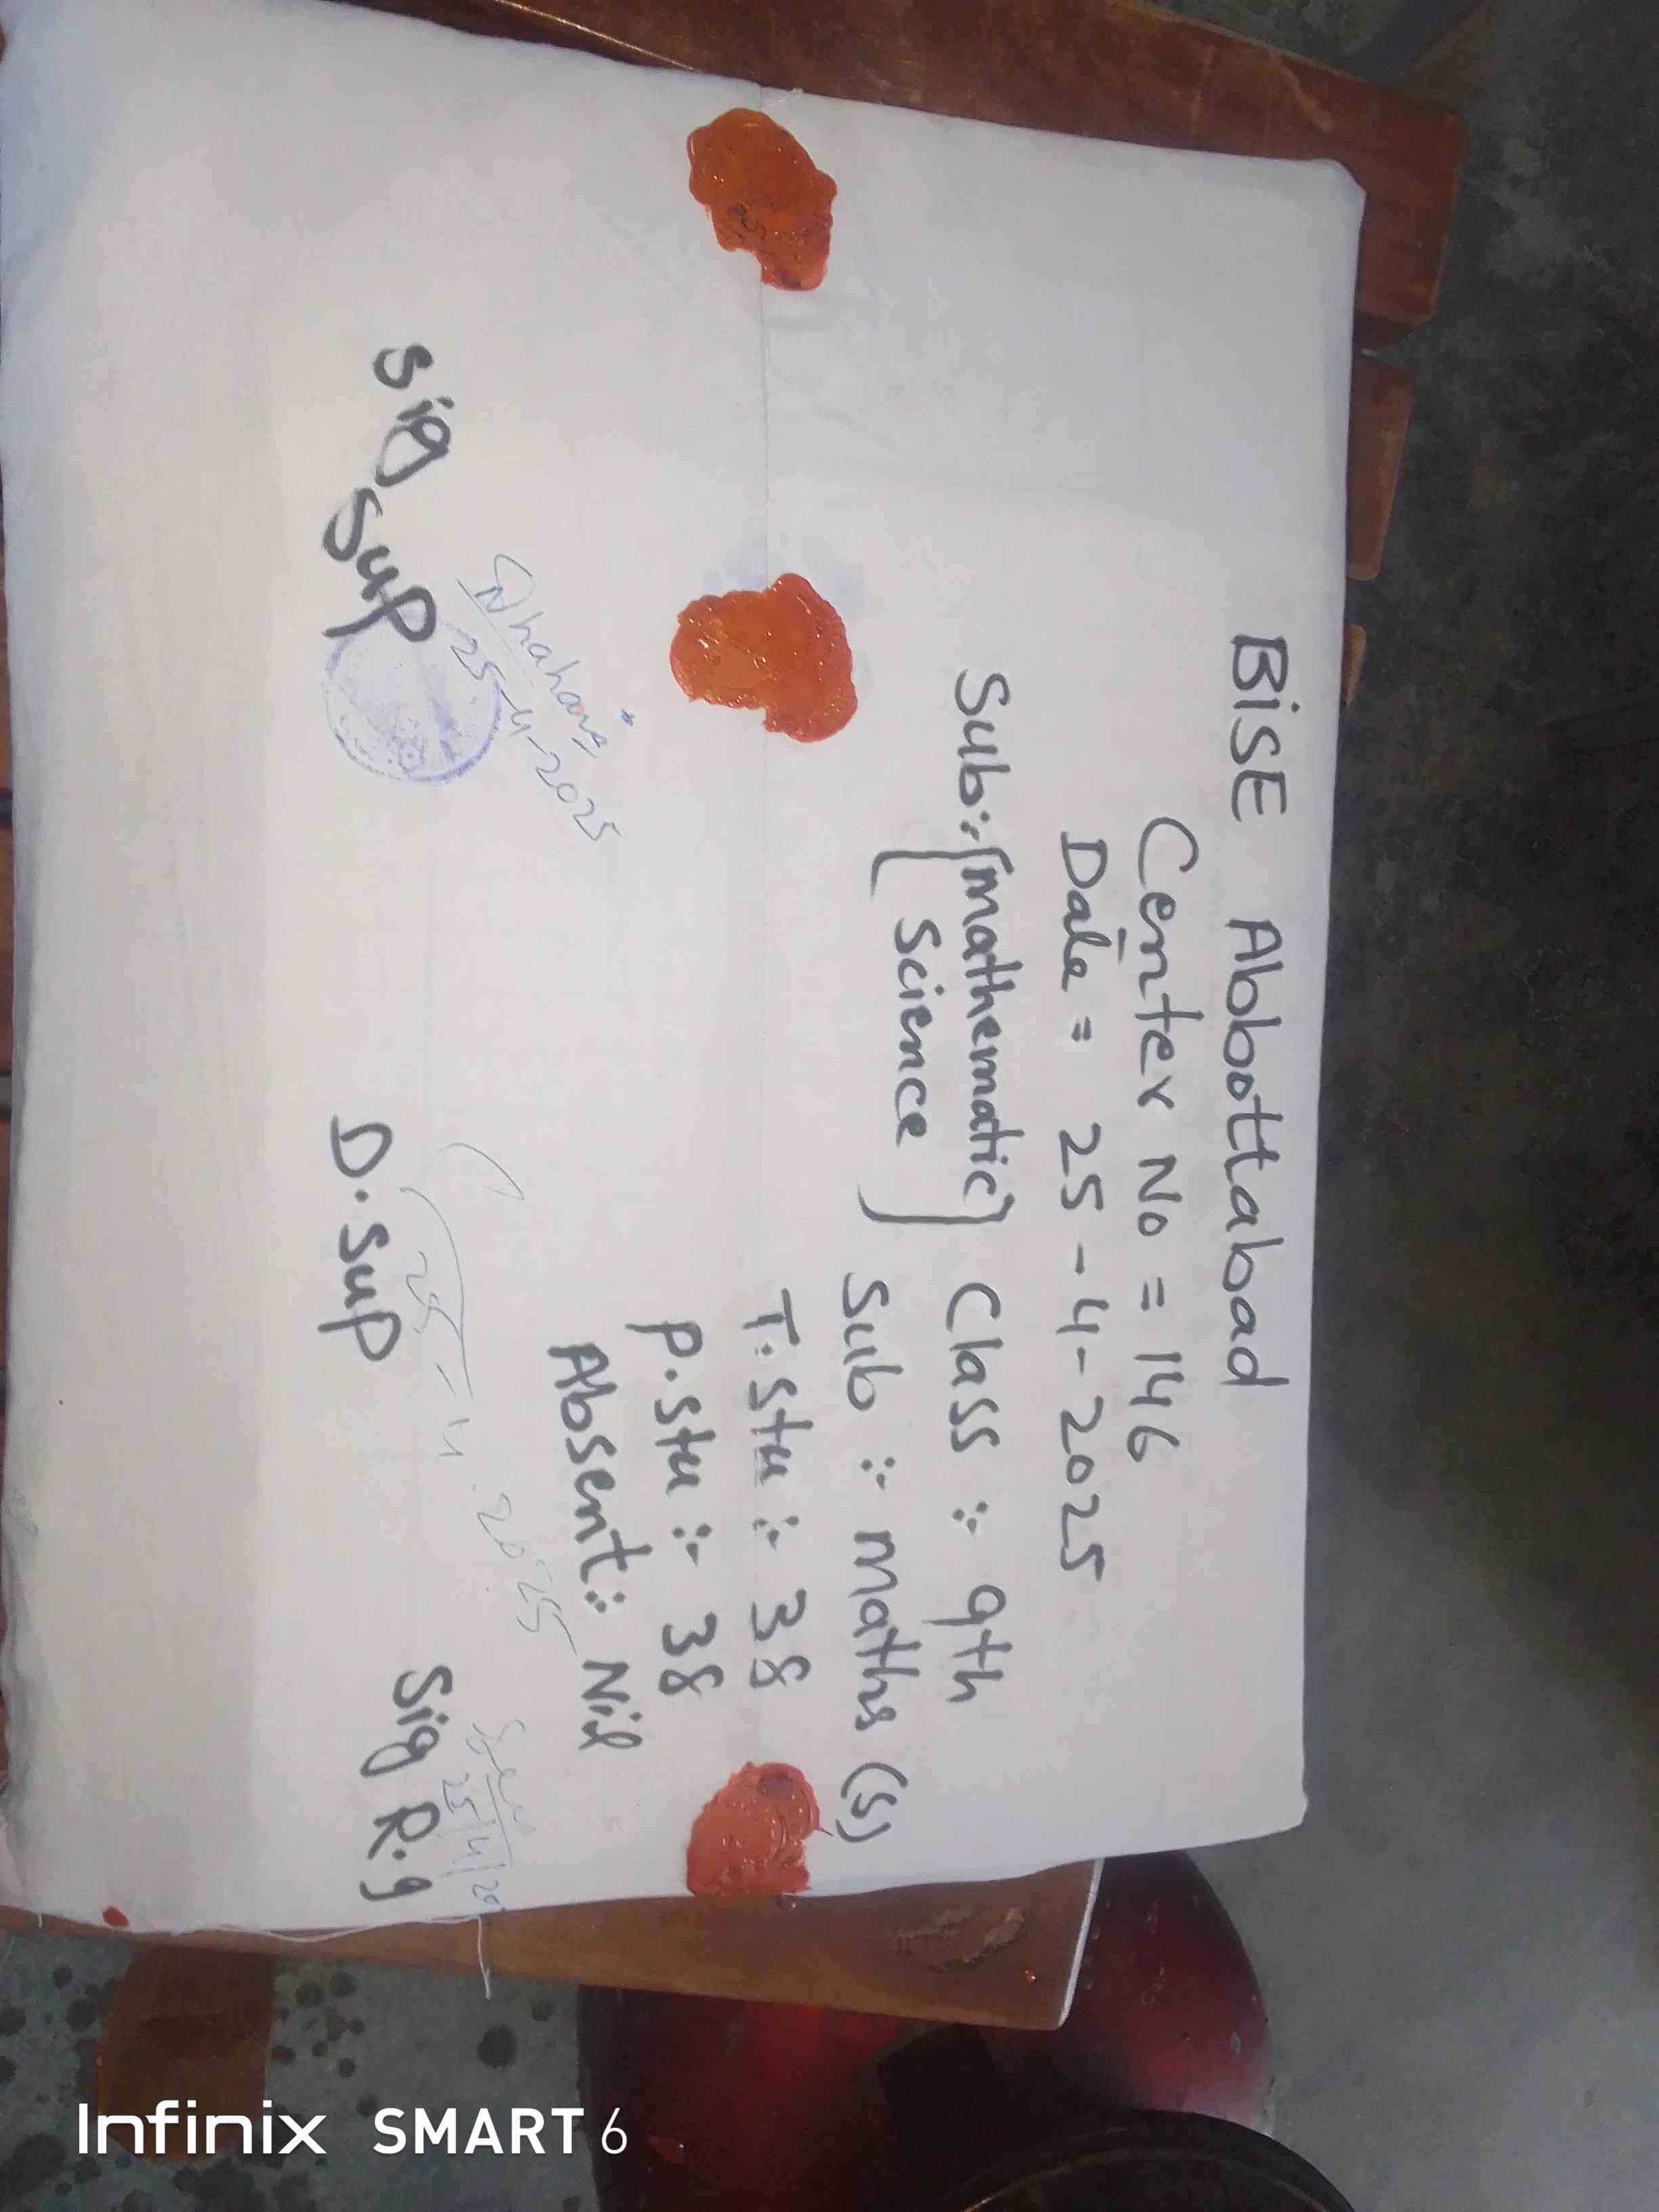 BISE Abbottabad
Center No = 146
Date = 25-4-2025
Sub:- [mathematic
Science]
Class :- 9th
Sub :- maths (S)
T.Stu :- 38
P.Stu :- 38
Absent :- Nil
25-4-2025
Sig Sup
25-4-2025
D.Sup
25/4/20
Sig R.g
Infinix SMART 6